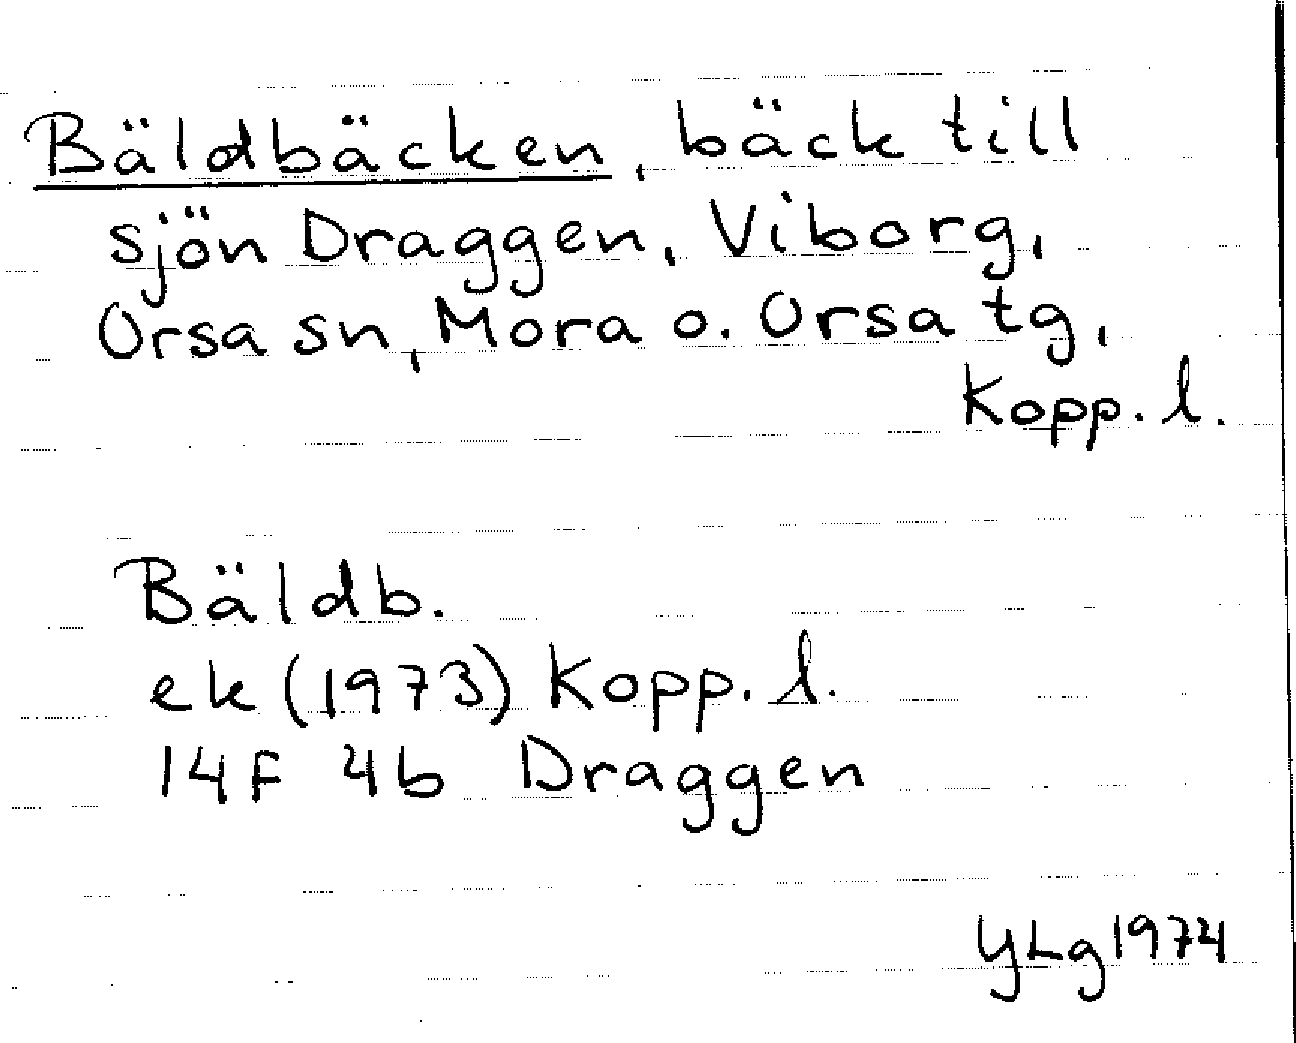 Bäldbäcken, bäck till
sjön Draggen, Viborg,
Orsa sn, Mora o. Orsa tg,
Kopp. l.
Bäldb.
ek (1973) Kopp. l.
14F 4b Draggen
YLg 1974